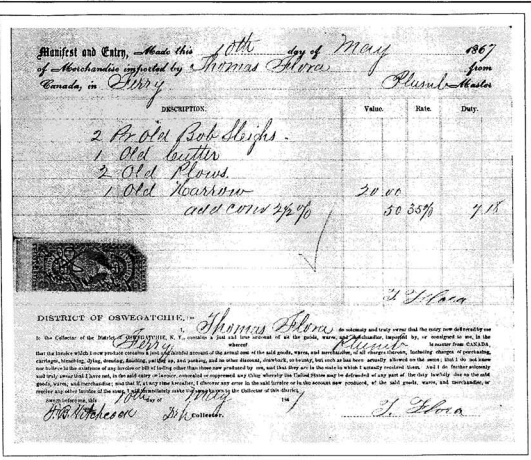 Manifest and Entry, Made this 10th day of May 1867
of Merchandise imported by Thomas Flora from
Canada, in Ferry Plumb Master
DESCRIPTION. Value. Rate. Duty.
2 Pr Old Bob Sleighs.
1 Old Cutter
2 Old Plows.
1 Old Harrow 20.00
add coms 2½% 50 35% 7.18
T. Flora
DISTRICT OF OSWEGATCHIE, ss
I, Thomas Flora do solemnly and truly swear that the entry now delivered by me
to the Collector of the District of OSWEGATCHIE, N. Y., contains a just and true account of all the goods, wares, and merchandise, imported by, or consigned to me, in the
Ferry whereof Plumb is master from CANADA,
that the invoice which I now produce contains a just and faithful account of the actual cost of the said goods, wares, and merchandize, of all charges thereon, including charges of purchasing,
carriages, bleaching, dying, dressing, finishing, putting up, and packing, and no other discount, drawback, or bounty, but such as has been actually allowed on the same; that I do not know
nor believe in the existence of any invoice or bill of lading other than those now produced by me, and that they are in the state in which I actually received them. And I do further solemnly
and truly swear that I have not, in the said entry or invoice, concealed or suppressed any thing whereby the United States may be defrauded of any part of the duty lawfully due on the said
goods, wares, and merchandise; and that if, at any time hereafter, I discover any error in the said invoice or in the account now produced, of the said goods, wares, and merchandize, or
receive any other invoice of the same, I will immediately make the same known to the Collector of this district.
Sworn before me, this 10th day of May 1867
Collector.
T. Flora